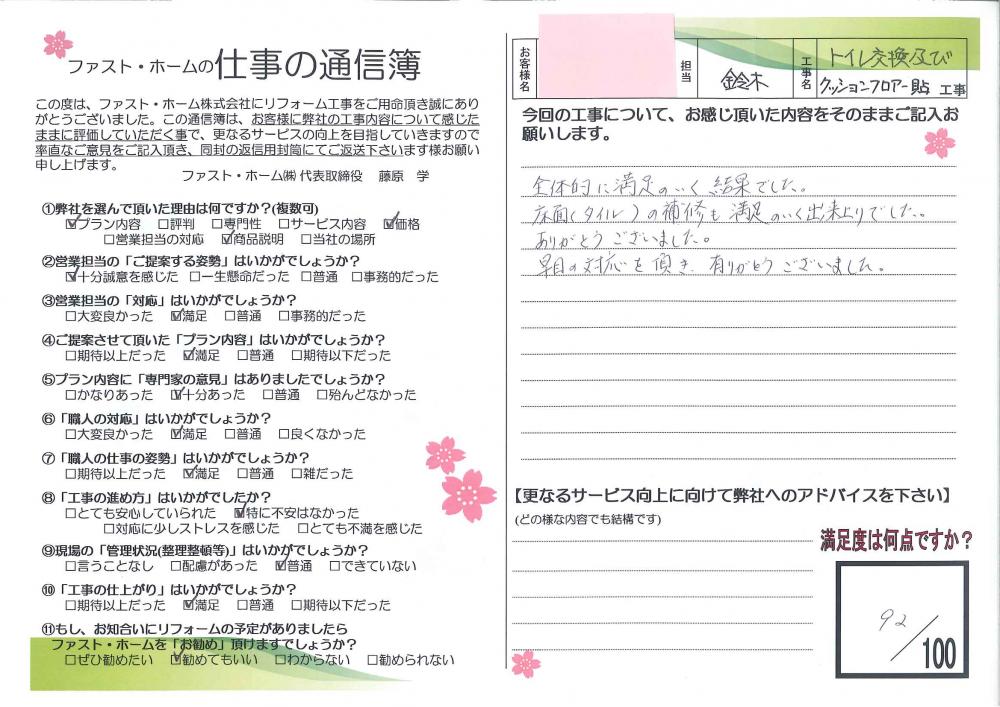 ファスト・ホームの仕事の通信簿
この度は、ファスト・ホーム株式会社にリフォーム工事をご用命頂き誠にあり
がとうございました。この通信簿は、お客様に弊社の工事内容について感じた
ままに評価していただく事で、更なるサービスの向上を目指していきますので
率直なご意見をご記入頂き、同封の返信用封筒にてご返送下さいます様お願い
申し上げます。
ファスト・ホーム㈱ 代表取締役 藤原 学
①弊社を選んで頂いた理由は何ですか?(複数可)
☑プラン内容 □評判 □専門性 □サービス内容 ☑価格
□営業担当の対応 ☑商品説明 □当社の場所
②営業担当の「ご提案する姿勢」はいかがでしょうか?
☑十分誠意を感じた □一生懸命だった □普通 □事務的だった
③営業担当の「対応」はいかがでしょうか?
□大変良かった ☑満足 □普通 □事務的だった
④ご提案させて頂いた「プラン内容」はいかがでしょうか?
□期待以上だった ☑満足 □普通 □期待以下だった
⑤プラン内容に「専門家の意見」はありましたでしょうか?
□かなりあった ☑十分あった □普通 □殆んどなかった
⑥「職人の対応」はいかがでしょうか?
□大変良かった ☑満足 □普通 □良くなかった
⑦「職人の仕事の姿勢」はいかがでしょうか?
□期待以上だった ☑満足 □普通 □雑だった
⑧「工事の進め方」はいかがでしたか?
□とても安心していられた ☑特に不安はなかった
□対応に少しストレスを感じた □とても不満を感じた
⑨現場の「管理状況(整理整頓等)」はいかがでしょうか?
□言うことなし □配慮があった ☑普通 □できていない
⑩「工事の仕上がり」はいかがでしょうか?
□期待以上だった ☑満足 □普通 □期待以下だった
⑪もし、お知合いにリフォームの予定がありましたら
ファスト・ホームを「お勧め」頂けますでしょうか?
□ぜひ勧めたい ☑勧めてもいい □わからない □勧められない
お客様名
担当 鈴木
工事名 トイレ交換及び
クッションフロアー貼 工事
今回の工事について、お感じ頂いた内容をそのままご記入お
願いします。
全体的に満足のいく結果でした。
床面(タイル)の補修も満足のいく出来上りでした。
ありがとうございました。
早目の対応を頂き、有りがとうございました。
【更なるサービス向上に向けて弊社へのアドバイスを下さい】
(どの様な内容でも結構です)
満足度は何点ですか?
92/100